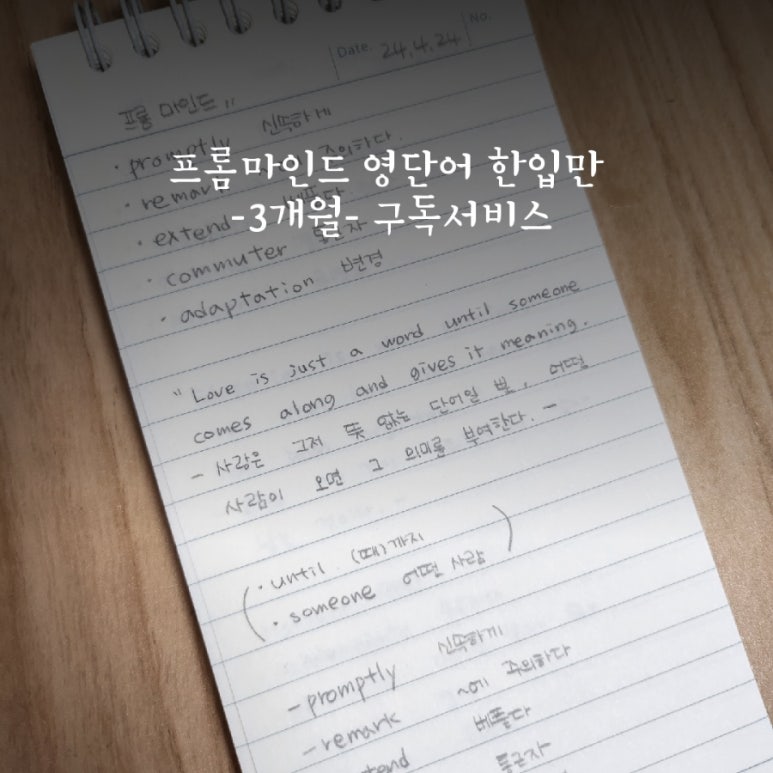 Date. 24.4.24 No.
프롬 마인드"
· promptly 신속하게
프롬마인드 영단어 한입만
· remark 주의하다.
-3개월- 구독서비스
· extend 베풀다.
· commuter 통근자
· adaptation 변경
"Love is just a word until someone
comes along and gives it meaning.
- 사랑은 그저 뜻 없는 단어일 뿐, 어떤
사람이 오면 그 의미를 부여한다. -
( · until (때)까지 )
· someone 어떤 사람
- promptly 신속하게
- remark ~에 주의하다
베풀다
통근자